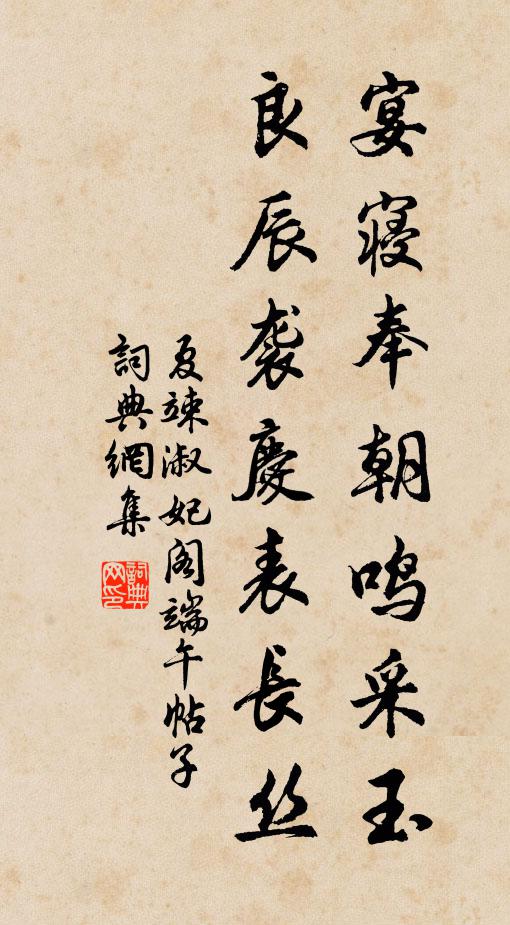 宴寝奉朝鸣采玉
良辰袭慶表長丝
夏竦淑妃阁端午帖子
詞典網集
詞典网印